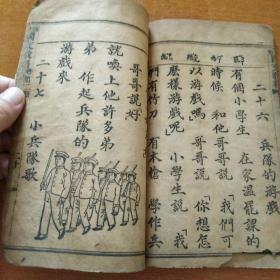 二十六 兵隊的游戲
有個小學生 在家溫罷課的
時候 和他哥哥說 「我們可
以游戲嗎」 哥哥說 「你想怎
麼樣游戲呢」 小學生說 「我
們有竹刀 有木槍 學作兵
哥哥說好
就喚上他許多弟
弟 作起兵隊的
游戲來
二十七 小兵隊歌